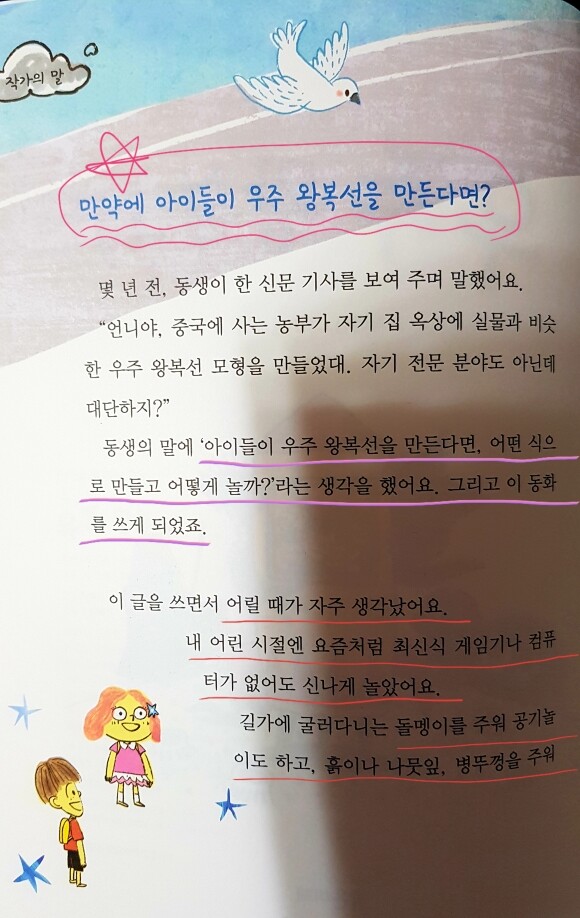 작가의 말
만약에 아이들이 우주 왕복선을 만든다면?
몇 년 전, 동생이 한 신문 기사를 보여 주며 말했어요.
“언니야, 중국에 사는 농부가 자기 집 옥상에 실물과 비슷
한 우주 왕복선 모형을 만들었대. 자기 전문 분야도 아닌데
대단하지?”
동생의 말에 ‘아이들이 우주 왕복선을 만든다면, 어떤 식으
로 만들고 어떻게 놀까?’라는 생각을 했어요. 그리고 이 동화
를 쓰게 되었죠.
이 글을 쓰면서 어릴 때가 자주 생각났어요.
내 어린 시절엔 요즘처럼 최신식 게임기나 컴퓨
터가 없어도 신나게 놀았어요.
길가에 굴러다니는 돌멩이를 주워 공기놀
이도 하고, 흙이나 나뭇잎, 병뚜껑을 주워